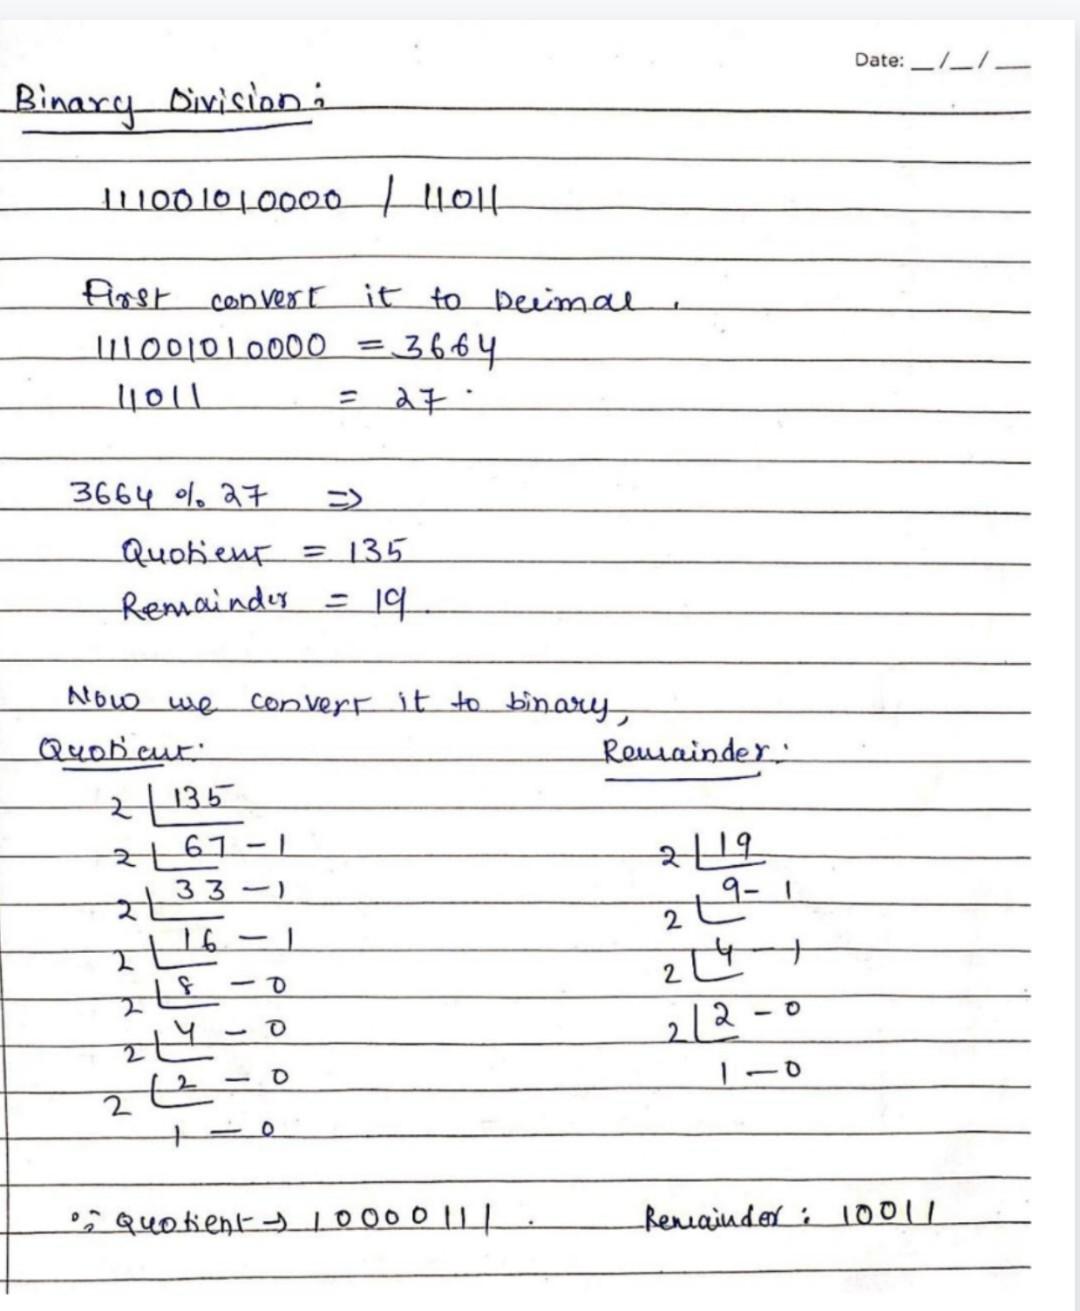 Date: __/__/__
Binary Division:
111001010000 / 11011
First convert it to Decimal.
111001010000 = 3664
11011 = 27.
3664 % 27 =>
Quotient = 135
Remainder = 19.
Now we convert it to binary,
Quotient: Remainder:
2 | 135
2 | 67 - 1 2 | 19
2 | 33 - 1 2 | 9 - 1
2 | 16 - 1 2 | 4 - 1
2 | 8 - 0 2 | 2 - 0
2 | 4 - 0 1 - 0
2 | 2 - 0
1 - 0
∴ Quotient → 10000111. Remainder: 10011